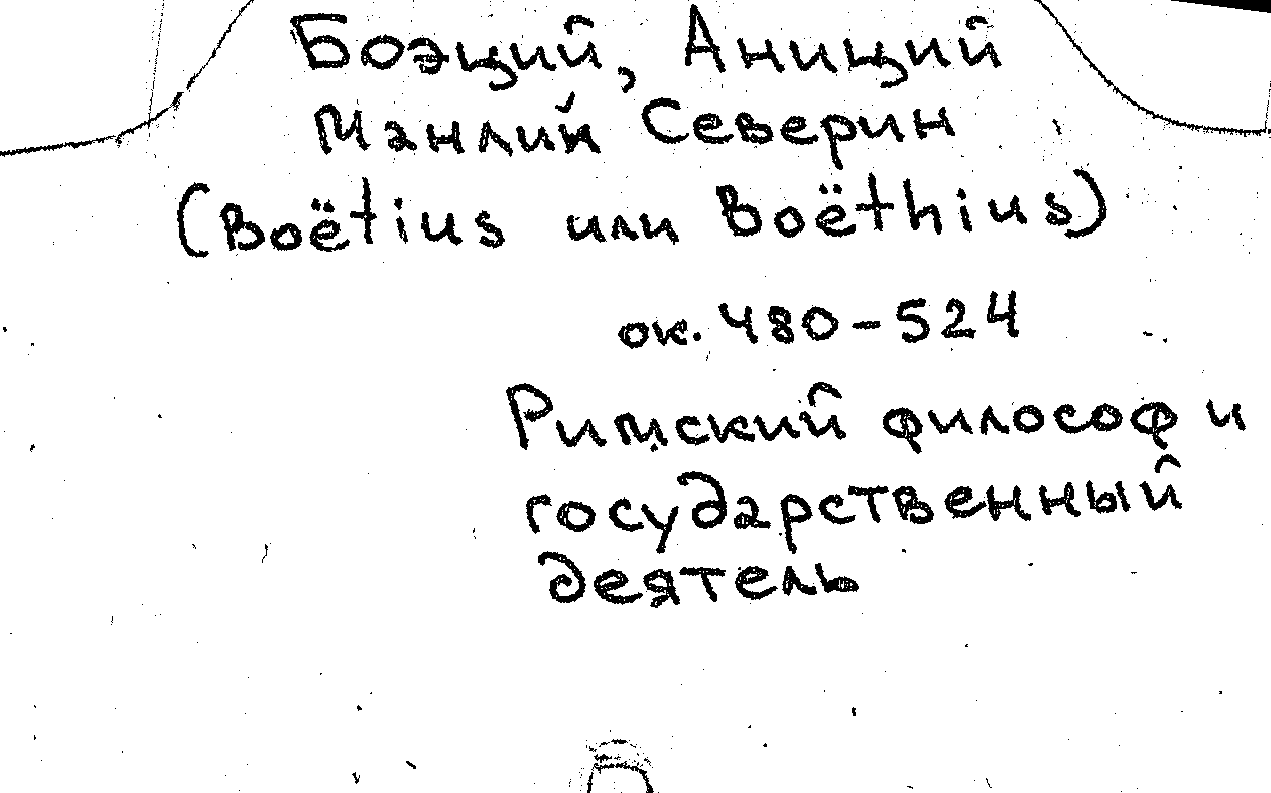 Боэций, Аниций
Манлий Северин
(Boëtius или Boëthius)
ок. 480-524
Римский философ и
государственный
деятель